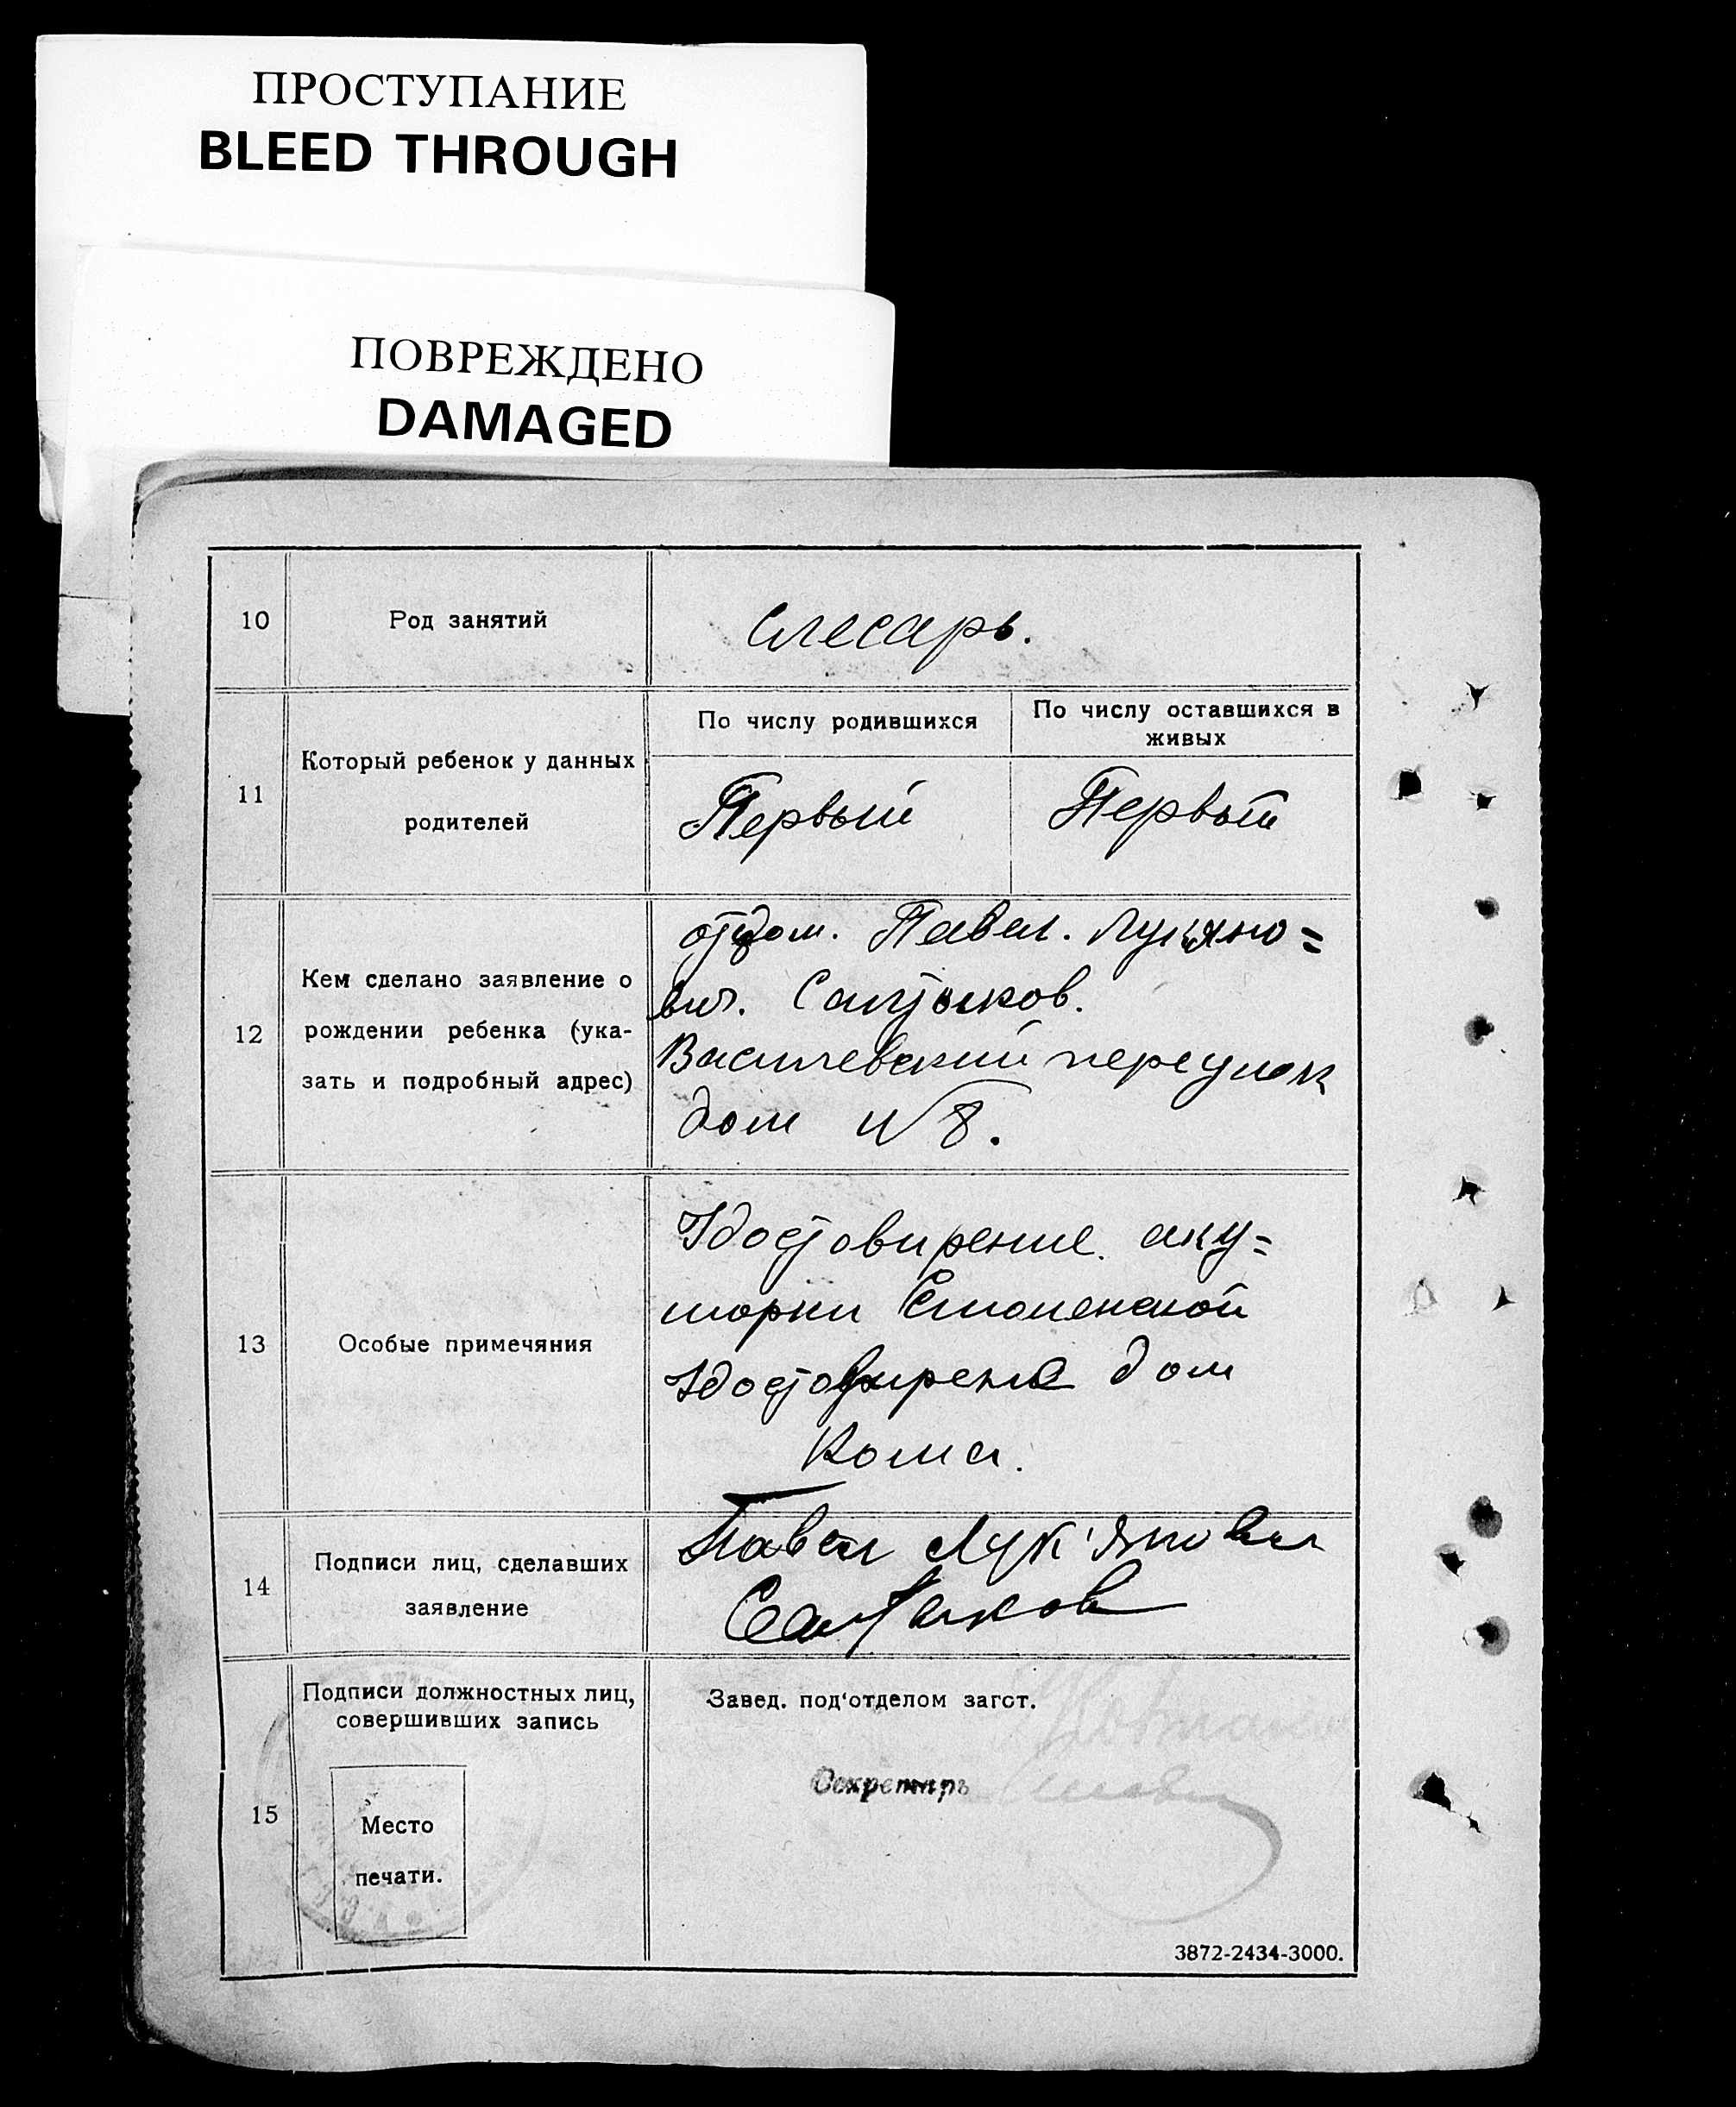 ПРОСТУПАНИЕ
BLEED THROUGH
ПОВРЕЖДЕНО
DAMAGED
10
Род занятий
Слесарь.
11
Который ребенок у данных
родителей
По числу родившихся
По числу оставшихся в
живых
Первый
Первый
12
Кем сделано заявление о
рождении ребенка (ука-
зать и подробный адрес)
отцом. Павел. Лукьяно=
вич. Салтыков.
Василевский переулок
дом №8.
13
Особые примечяния
Удостовирение аку=
шорки Смоленской
Удостовирение дом
кома.
14
Подписи лиц, сделавших
заявление
Павел Лук'янович
Салтыков
15
Подписи должностных лиц,
совершивших запись
Место
печати.
Завед. под'отделом загст.
Секретарь
3872-2434-3000.